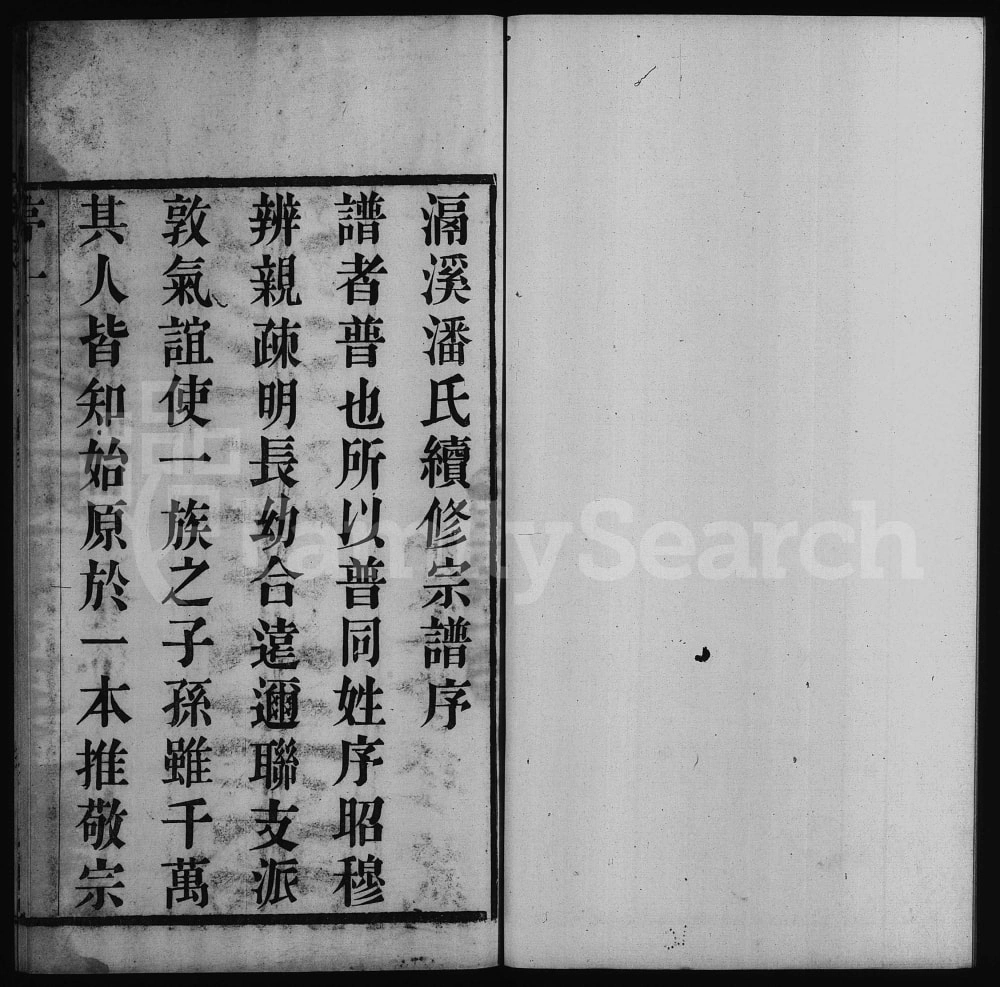 滆溪潘氏續修宗譜序
譜者普也所以普同姓序昭穆
辨親疎明長幼合遠邇聯支派
敦氣誼使一族之子孫雖千萬
其人皆知始原於一本推敬宗
序 一
FamilySearch